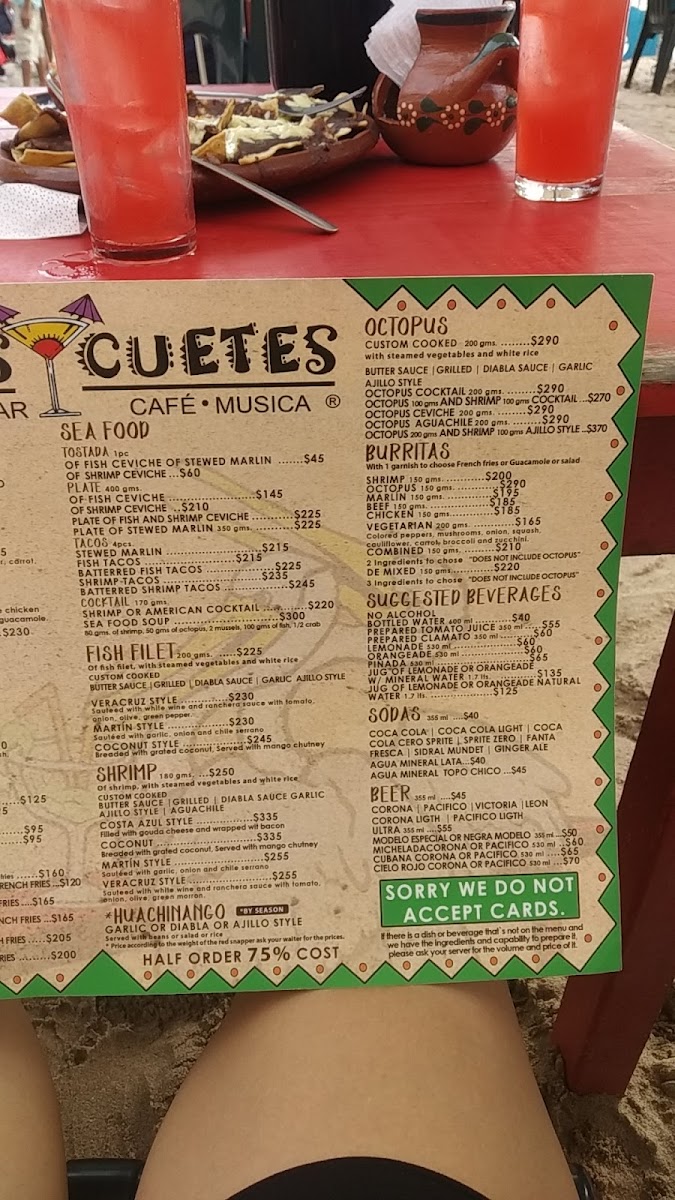 S CUETES
AR CAFÉ • MUSICA ®
5
r, carrot,
e chicken
guacamole
..$230
..$125
$95
$95
$160
RENCH FRIES ...$120
RIES ....$165
NCH FRIES ...$165
H FRIES .....$205
RIES .....$200
SEA FOOD
TOSTADA 1pc
OF FISH CEVICHE OF STEWED MARLIN .......$45
OF SHRIMP CEVICHE ...$60
PLATE 400 gms.
OF FISH CEVICHE ....................$145
OF SHRIMP CEVICHE ...$210
PLATE OF FISH AND SHRIMP CEVICHE ..........$225
PLATE OF STEWED MARLIN 350 gms. ..........$225
TACOS 4pcs.
STEWED MARLIN ......................$215
FISH TACOS ...................$215
BATTERRED FISH TACOS .................$225
SHRIMP TACOS .....................$235
BATTERRED SHRIMP TACOS ...............$245
COCKTAIL 170 gms.
SHRIMP OR AMERICAN COCKTAIL ............$220
SEA FOOD SOUP .......................$300
50 gms. of shrimp, 50 gms of octopus, 2 mussels, 100 gms of fish, 1/2 crab
FISH FILET 200 gms. .....$225
Of fish filet, with steamed vegetables and white rice
CUSTOM COOKED
BUTTER SAUCE |GRILLED | DIABLA SAUCE | GARLIC AJILLO STYLE
VERACRUZ STYLE ..............$230
Sauteed with white wine and ranchera sauce with tomato,
onion, olive, green pepper.
MARTIN STYLE ..............$230
Sauteed with garlic, onion and chile serrano
COCONUT STYLE ..............$245
Breaded with grated coconut, Served with mango chutney
SHRIMP 180 gms. ...$250
Of shrimp, with steamed vegetables and white rice
CUSTOM COOKED
BUTTER SAUCE |GRILLED | DIABLA SAUCE GARLIC
AJILLO STYLE | AGUACHILE
COSTA AZUL STYLE ..................$335
Filled with gouda cheese and wrapped wit bacon
COCONUT .......................$335
Breaded with grated coconut, Served with mango chutney
MARTÍN STYLE .....................$255
Sautéed with garlic, onion and chile serrano
VERACRUZ STYLE ..................$255
Sauteed with white wine and ranchera sauce with tomato,
onion, olive, green morron.
*HUACHINANGO *BY SEASON
GARLIC OR DIABLA OR AJILLO STYLE
Served with beans or salad or rice
* Price according to the weight of the red snapper ask your waiter for the prices.
HALF ORDER 75% COST
OCTOPUS
CUSTOM COOKED 200 gms. ........$290
with steamed vegetables and white rice
BUTTER SAUCE |GRILLED | DIABLA SAUCE | GARLIC
AJILLO STYLE
OCTOPUS COCKTAIL 200 gms. ........$290
OCTOPUS 100 gms AND SHRIMP 100 gms COCKTAIL ...$270
OCTOPUS CEVICHE 200 gms. .......$290
OCTOPUS AGUACHILE 200 gms. .......$290
OCTOPUS 200 gms AND SHRIMP 100 gms AJILLO STYLE ...$370
BURRITAS
With 1 garnish to choose French fries or Guacamole or salad
SHRIMP 150 gms. ............$200
OCTOPUS 150 gms. .............$290
MARLIN 150 gms. ............$195
BEEF 150 gms. ..............$185
CHICKEN 150 gms. ............$185
VEGETARIAN 200 gms. ............$165
Colored peppers, mushrooms, onion, squash,
cauliflower, carrot, broccoli and zucchini.
COMBINED 150 gms. .........$210
2 Ingredients to chose "DOES NOT INCLUDE OCTOPUS"
DE MIXED 150 gms. ..........$220
3 Ingredients to chose "DOES NOT INCLUDE OCTOPUS"
SUGGESTED BEVERAGES
NO ALCOHOL
BOTTLED WATER 600 ml ........$40
PREPARED TOMATO JUICE 350 ml ....$55
PREPARED CLAMATO 350 ml ........$60
LEMONADE 530 ml ...............$60
ORANGEADE 530 ml ..............$60
PINADA 530 ml ................$65
JUG OF LEMONADE OR ORANGEADE
W/ MINERAL WATER 1.7 lts. ...........$135
JUG OF LEMONADE OR ORANGEADE NATURAL
WATER 1.7 lts. ...............$125
SODAS 355 ml ....$40
COCA COLA | COCA COLA LIGHT | COCA
COLA CERO SPRITE | SPRITE ZERO | FANTA
FRESCA | SIDRAL MUNDET | GINGER ALE
AGUA MINERAL LATA...$40
AGUA MINERAL TOPO CHICO ...$45
BEER 355 ml ....$45
CORONA | PACIFICO |VICTORIA |LEON
CORONA LIGTH | PACIFICO LIGTH
ULTRA 355 ml ....$55
MODELO ESPECIAL OR NEGRA MODELO 355 ml ...$50
MICHELADACORONA OR PACIFICO 530 ml ...$60
CUBANA CORONA OR PACIFICO 530 ml ....$65
CIELO ROJO CORONA OR PACIFICO 530 ml ....$70
SORRY WE DO NOT
ACCEPT CARDS.
If there is a dish or beverage that's not on the menu and
we have the ingredients and capability to prepare it,
please ask your server for the volume and price of it.